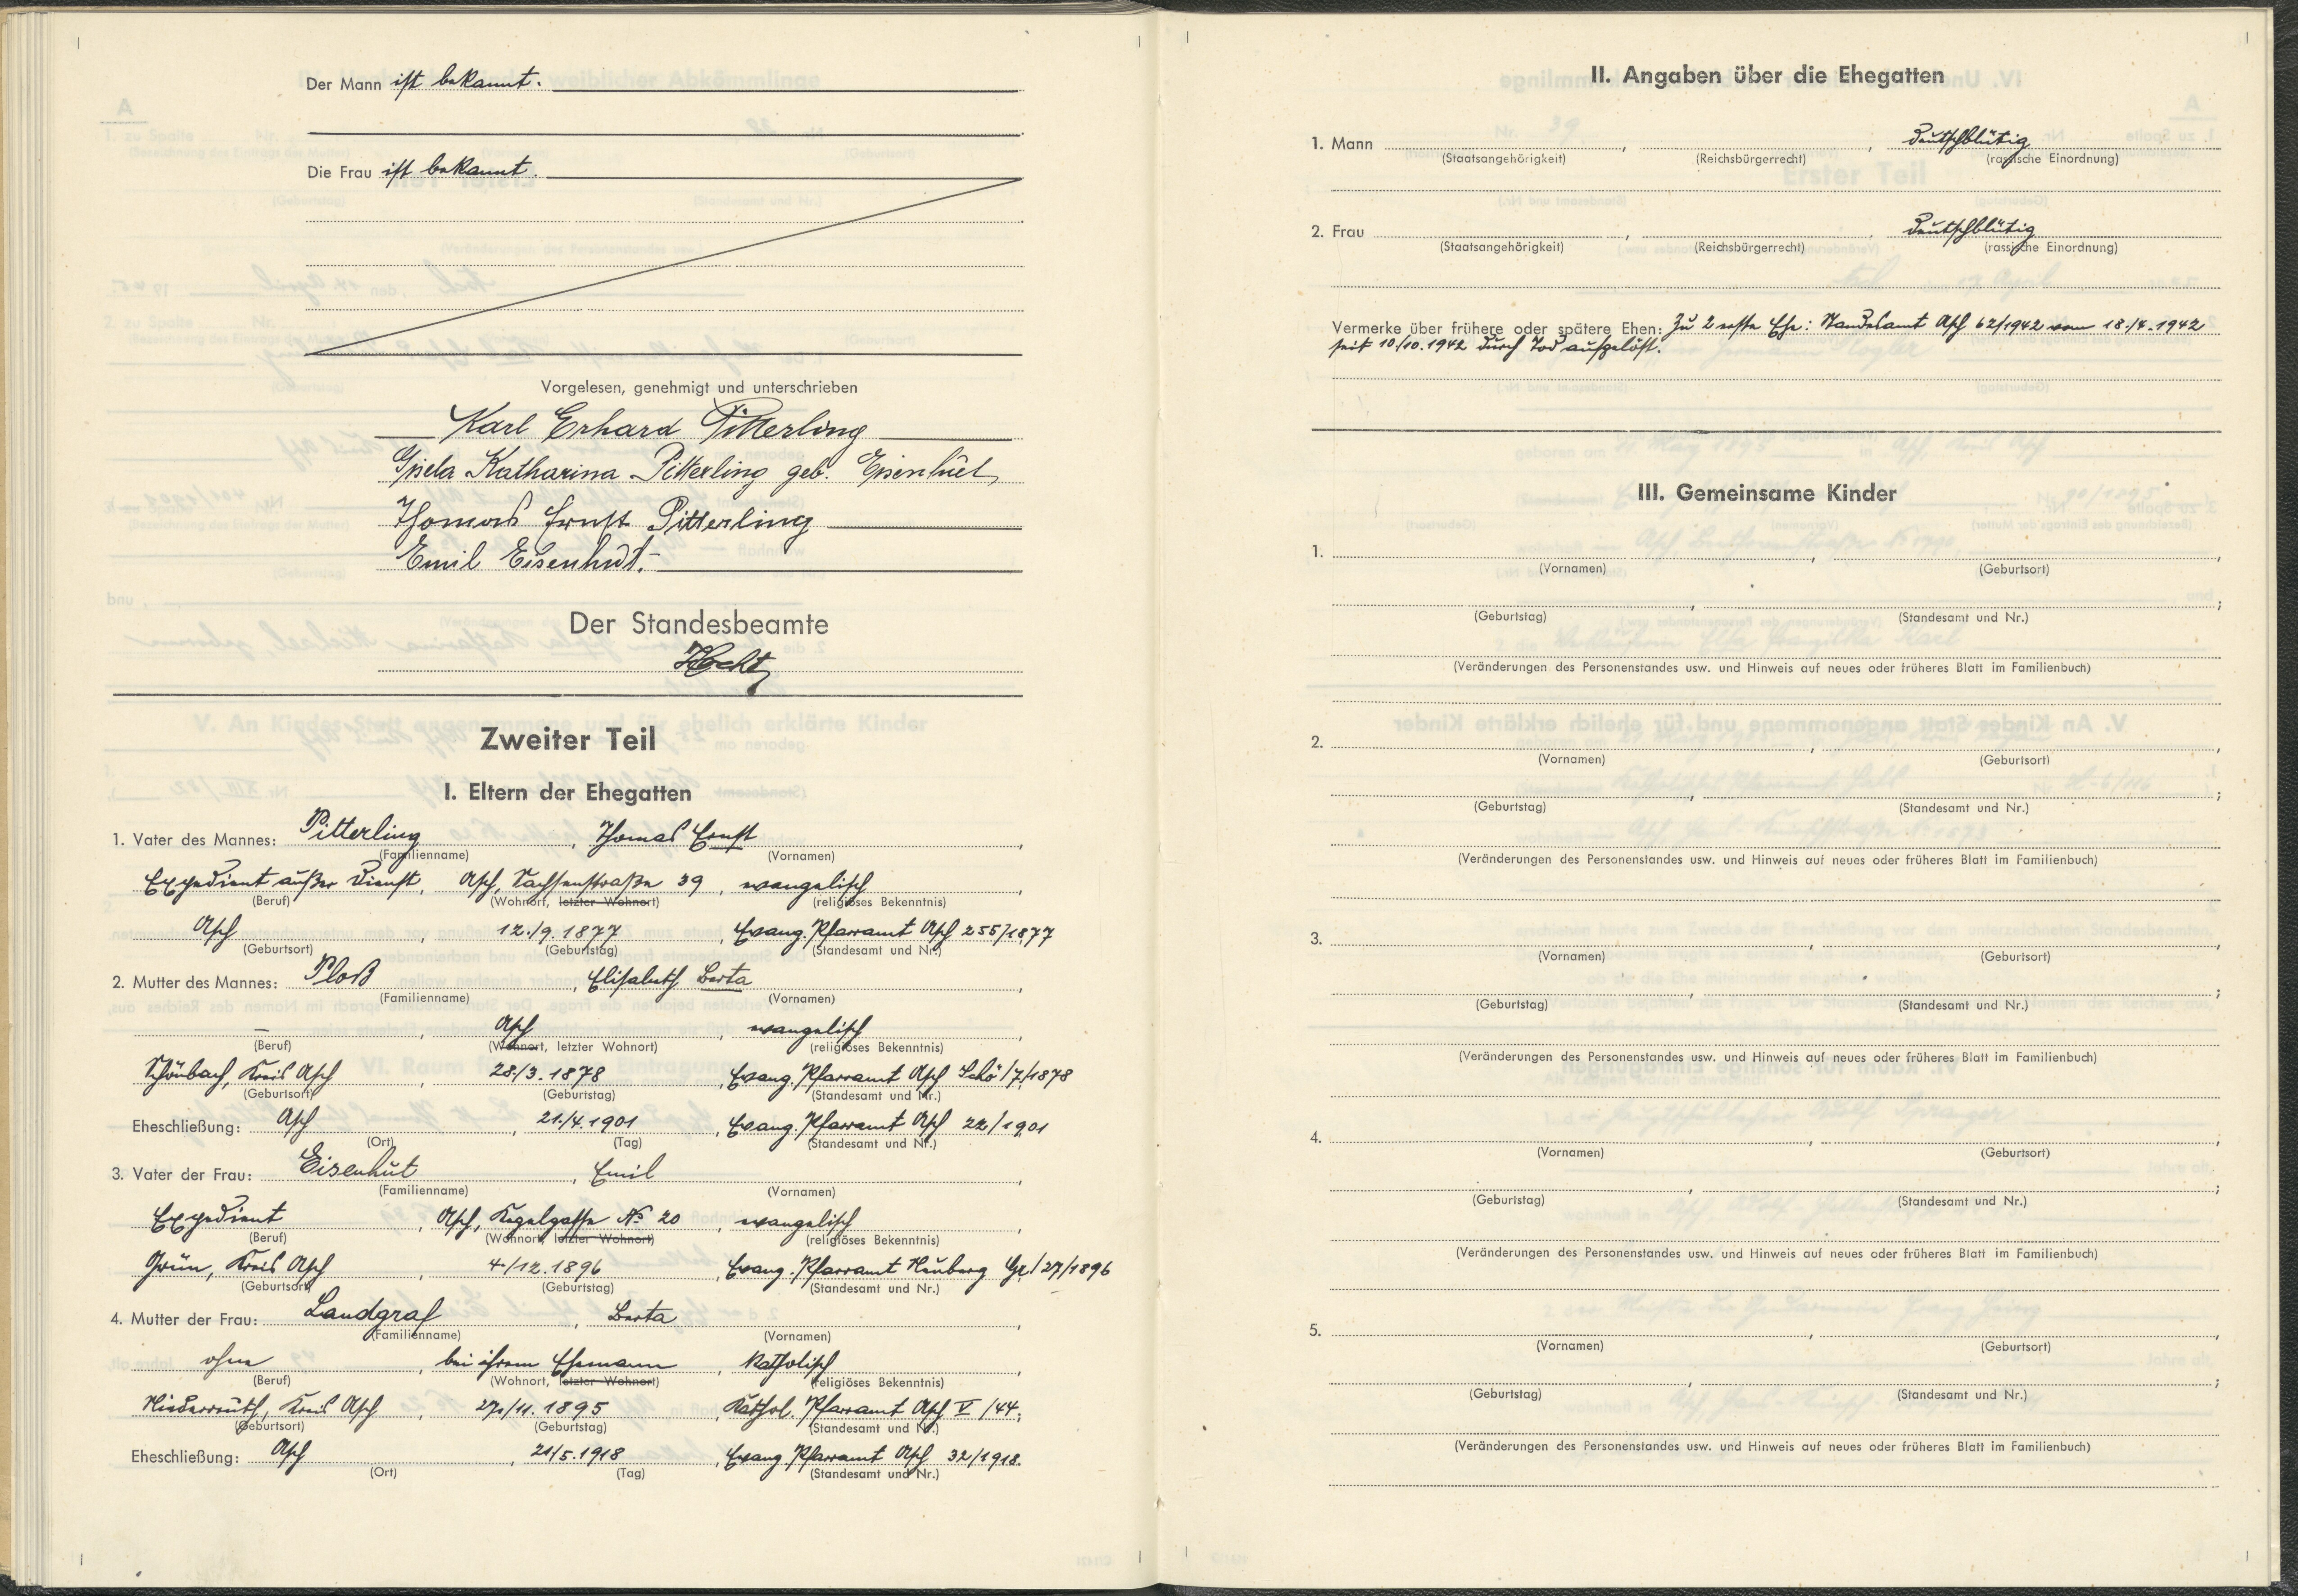 Der Mann ist bekannt.
Die Frau ist bekannt.
Vorgelesen, genehmigt und unterschrieben
Karl Erhard Pitterling
Gisela Katharina Pitterling geb. Eisenhut
Thomas Ernst Pitterling
Emil Eisenhut.
Der Standesbeamte
Hecht
Zweiter Teil
I. Eltern der Ehegatten
1. Vater des Mannes: Pitterling, Thomas Ernst,
(Familienname) (Vornamen)
Expedient außer Dienst, Asch, Sachsenstraße 39, evangelisch,
(Beruf) (Wohnort, letzter Wohnort) (religiöses Bekenntnis)
Asch, 12./9. 1877, Evang. Pfarramt Asch 255/1877
(Geburtsort) (Geburtstag) (Standesamt und Nr.)
2. Mutter des Mannes: Ploß, Elisabeth Berta,
(Familienname) (Vornamen)
—, Asch, evangelisch,
(Beruf) (Wohnort, letzter Wohnort) (religiöses Bekenntnis)
Schönbach, Kreis Asch, 28./3. 1878, Evang. Pfarramt Asch Schö/7/1878
(Geburtsort) (Geburtstag) (Standesamt und Nr.)
Eheschließung: Asch, 21./4. 1901, Evang. Pfarramt Asch 22/1901
(Ort) (Tag) (Standesamt und Nr.)
3. Vater der Frau: Eisenhut, Emil,
(Familienname) (Vornamen)
Expedient, Asch, Kegelgasse No 20, evangelisch,
(Beruf) (Wohnort, letzter Wohnort) (religiöses Bekenntnis)
Grün, Kreis Asch, 4./12. 1896, Evang. Pfarramt Neuberg Gr./27/1896
(Geburtsort) (Geburtstag) (Standesamt und Nr.)
4. Mutter der Frau: Landgraf, Berta,
(Familienname) (Vornamen)
ohne, bei ihrem Ehemann, katholisch,
(Beruf) (Wohnort, letzter Wohnort) (religiöses Bekenntnis)
Niederreuth, Kreis Asch, 27./11. 1895, Kathol. Pfarramt Asch V/44;
(Geburtsort) (Geburtstag) (Standesamt und Nr.)
Eheschließung: Asch, 21/5. 1918, Evang. Pfarramt Asch 32/1918.
(Ort) (Tag) (Standesamt und Nr.)
II. Angaben über die Ehegatten
1. Mann , , deutschblütig
(Staatsangehörigkeit) (Reichsbürgerrecht) (rassische Einordnung)
2. Frau , , deutschblütig
(Staatsangehörigkeit) (Reichsbürgerrecht) (rassische Einordnung)
Vermerke über frühere oder spätere Ehen: Zu 2 erste Ehe: Standesamt Asch 62/1942 vom 18./4. 1942
seit 10./10. 1942 durch Tod aufgelöst.
III. Gemeinsame Kinder
1. , ,
(Vornamen) (Geburtsort)
, ;
(Geburtstag) (Standesamt und Nr.)
(Veränderungen des Personenstandes usw. und Hinweis auf neues oder früheres Blatt im Familienbuch)
2. , ,
(Vornamen) (Geburtsort)
, ;
(Geburtstag) (Standesamt und Nr.)
(Veränderungen des Personenstandes usw. und Hinweis auf neues oder früheres Blatt im Familienbuch)
3. , ,
(Vornamen) (Geburtsort)
, ;
(Geburtstag) (Standesamt und Nr.)
(Veränderungen des Personenstandes usw. und Hinweis auf neues oder früheres Blatt im Familienbuch)
4. , ,
(Vornamen) (Geburtsort)
, ;
(Geburtstag) (Standesamt und Nr.)
(Veränderungen des Personenstandes usw. und Hinweis auf neues oder früheres Blatt im Familienbuch)
5. , ,
(Vornamen) (Geburtsort)
, ;
(Geburtstag) (Standesamt und Nr.)
(Veränderungen des Personenstandes usw. und Hinweis auf neues oder früheres Blatt im Familienbuch)